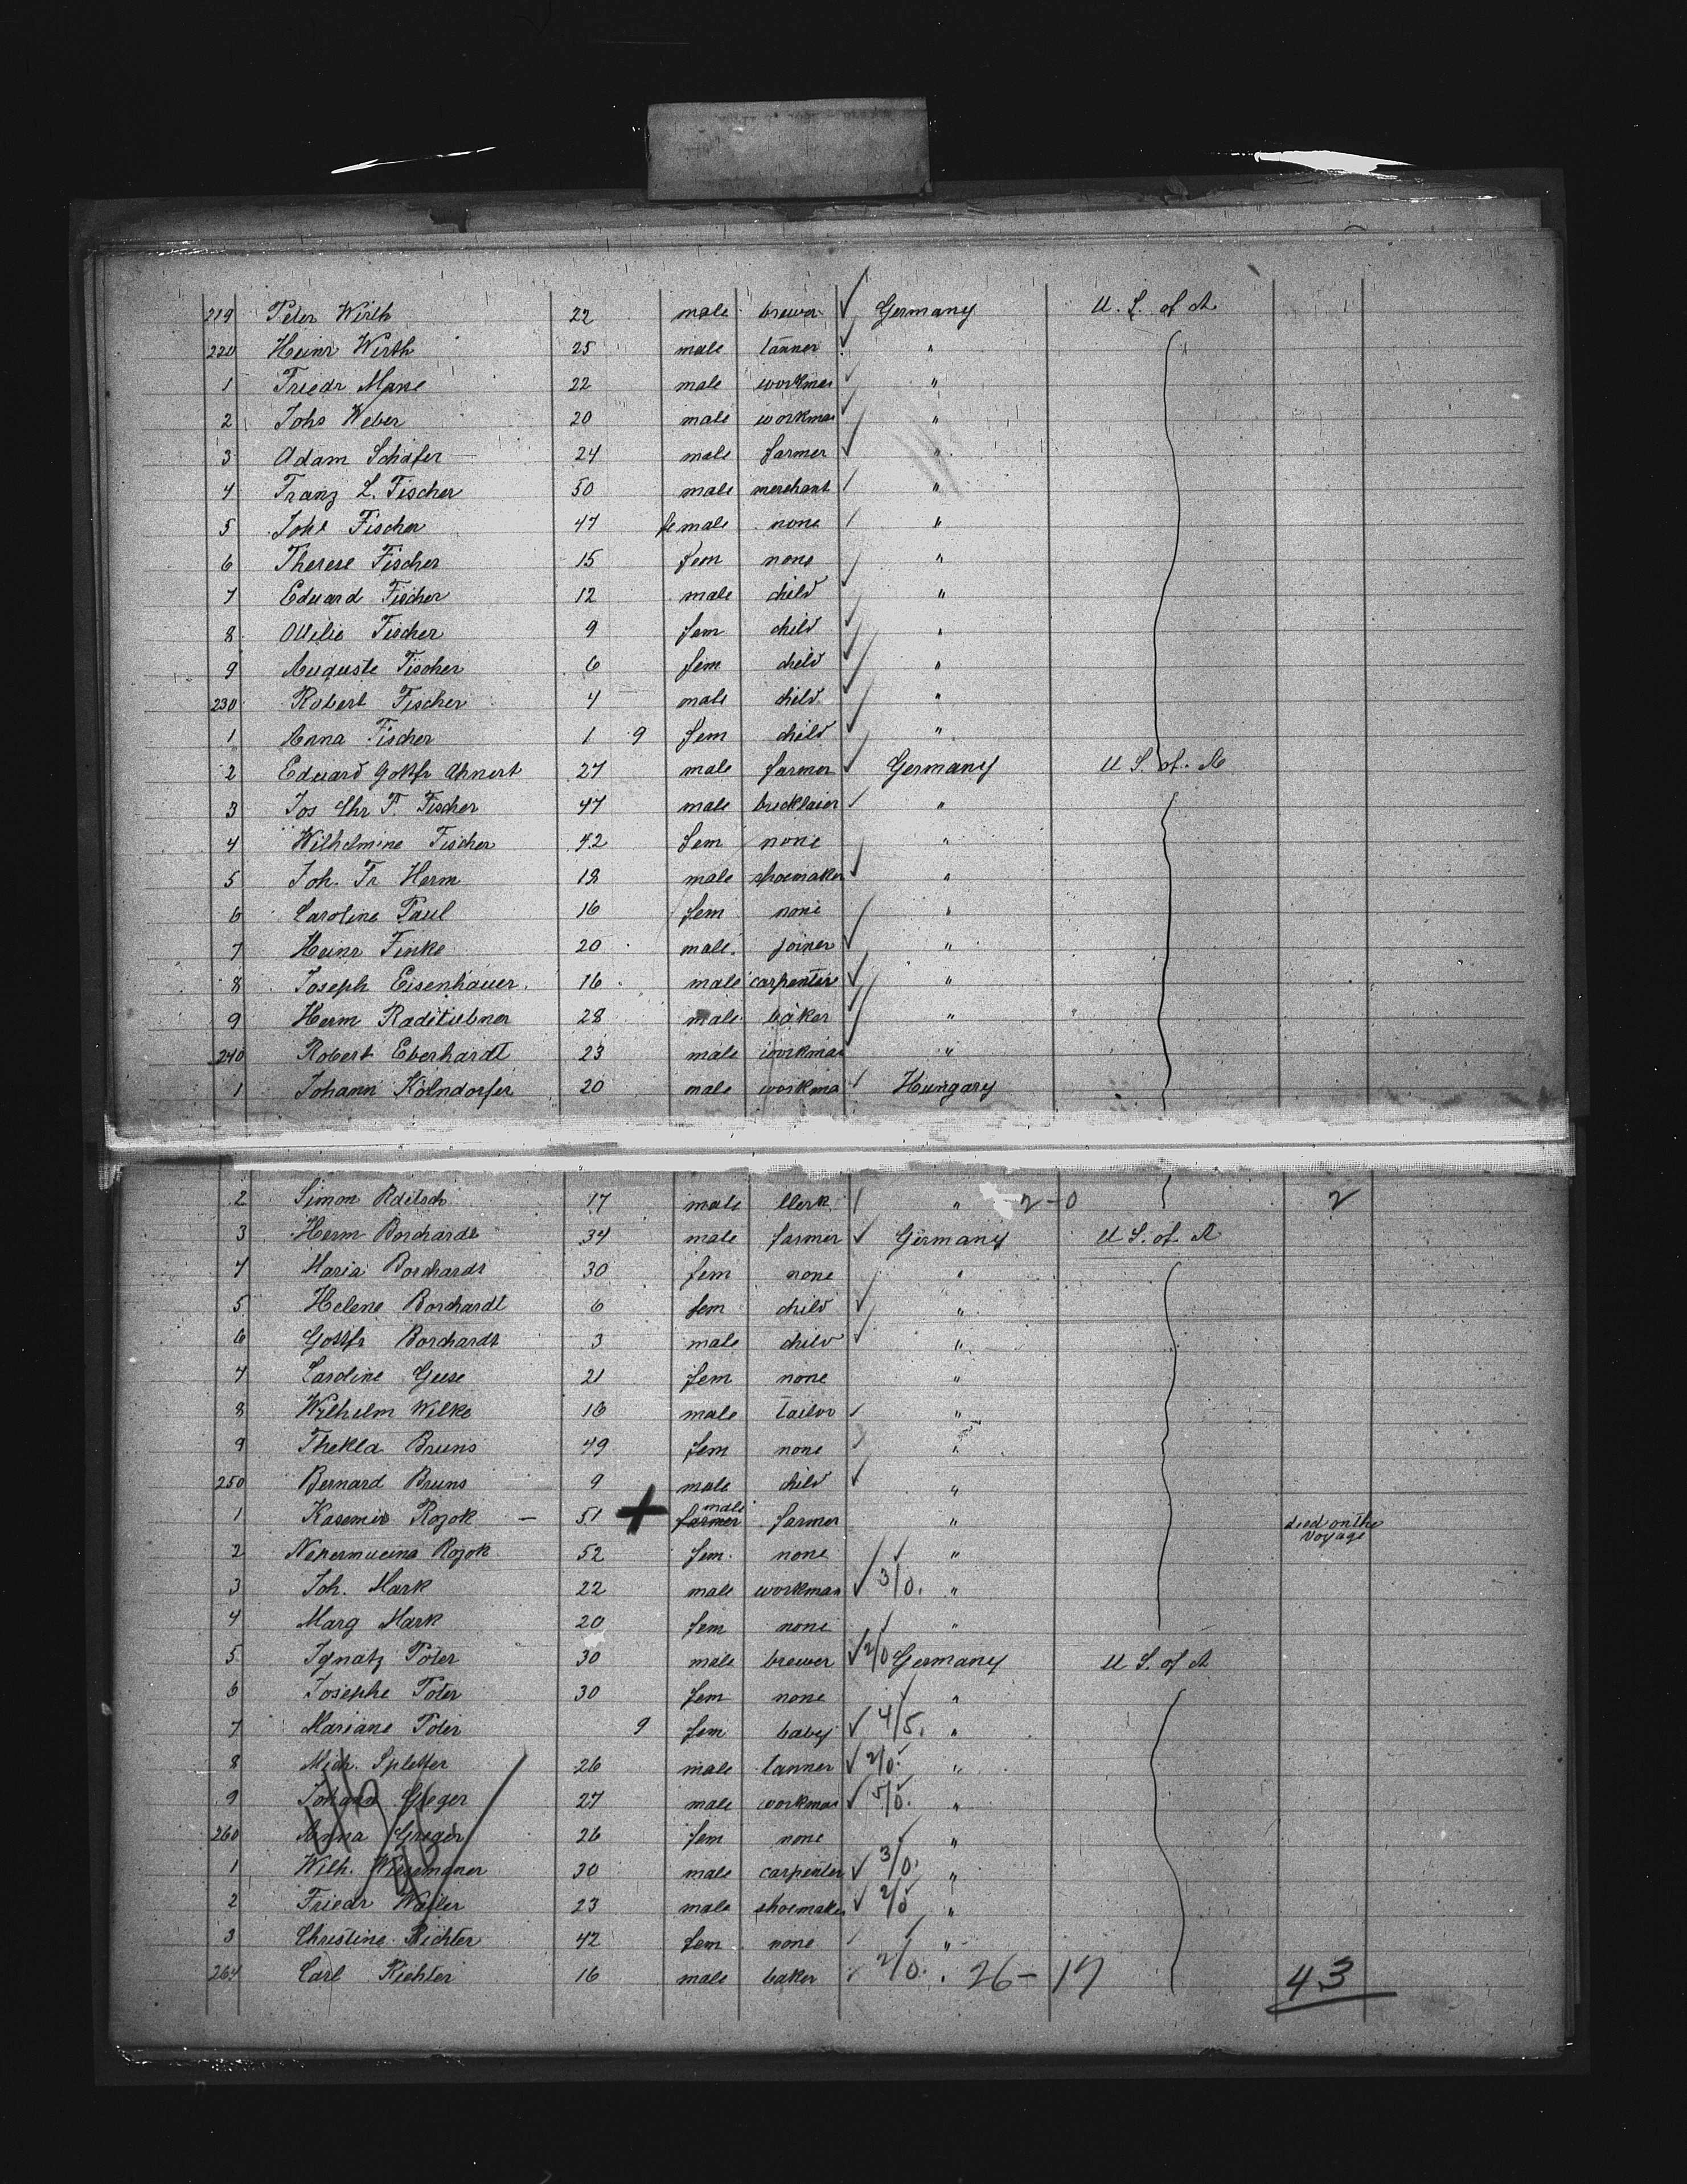 219 Peter Wirth 22 male brewer Germany U. S. of A.
220 Heinr Wirth 25 male tanner "
1 Friedr 22 male workman "
2 Johs Weber 20 male workman "
3 Adam Schäfer 24 male farmer "
4 Franz L. Fischer 50 male merchant "
5 Fischer 47 female none "
6 Therese Fischer 15 fem none "
7 Eduard Fischer 12 male child "
8 Ottilie Fischer 9 fem child "
9 Auguste Fischer 6 fem child "
230 Robert Fischer 4 male child "
1 Anna Fischer 1 9 fem child "
2 Eduard Gottfr Ahnert 27 male farmer Germany U S. of. A
3 Jos Chr F. Fischer 47 male bricklaier "
4 Wilhelmine Fischer 42 fem none "
5 Joh. Fr Herm 18 male shoemaker "
6 Caroline Paul 16 fem none "
7 Heinr Finke 20 male joiner "
8 Joseph Eisenhauer 16 male carpenter "
9 Herm 28 male baker "
240 Robert Eberhardt 23 male workman "
1 Johann Kölndorfer 20 male workma Hungary
2 Simon 17 male Clerk " 2-0 2
3 Herm Borchardt 34 male farmer Germany U S. of. A
4 Maria Borchardt 30 fem none "
5 Helene Borchardt 6 fem child "
6 Gottfr Borchardt 3 male child "
7 Caroline Geese 21 fem none "
8 Wilhelm Wilke 16 male tailor "
9 Thekla Bruns 49 fem none "
250 Bernard Bruns 9 male child "
1 Kasemir Rozok - 51 + farmer male farmer " died on the voyage
2 Rozok 52 fem. none "
3 Joh. Mark 22 male workman 3/0. "
4 Marg Mark 20 fem none "
5 Ignatz Poter 30 male brewer 2/0 Germany U S. of A
6 Josephe Poter 30 fem none "
7 Mariane Poter 9 fem baby 4/5. "
8 Mich. Spletter 26 male tanner 2/0. "
9 Johann Greger 27 male workman 5/0. "
260 Anna Greger 26 fem none "
1 Wilh. 30 male carpenter 3/0. "
2 Friedr 23 male shoemaker 2/0 "
3 Christine Richter 42 fem none "
264 Carl Richter 16 male baker 2/0. " 26-17 43